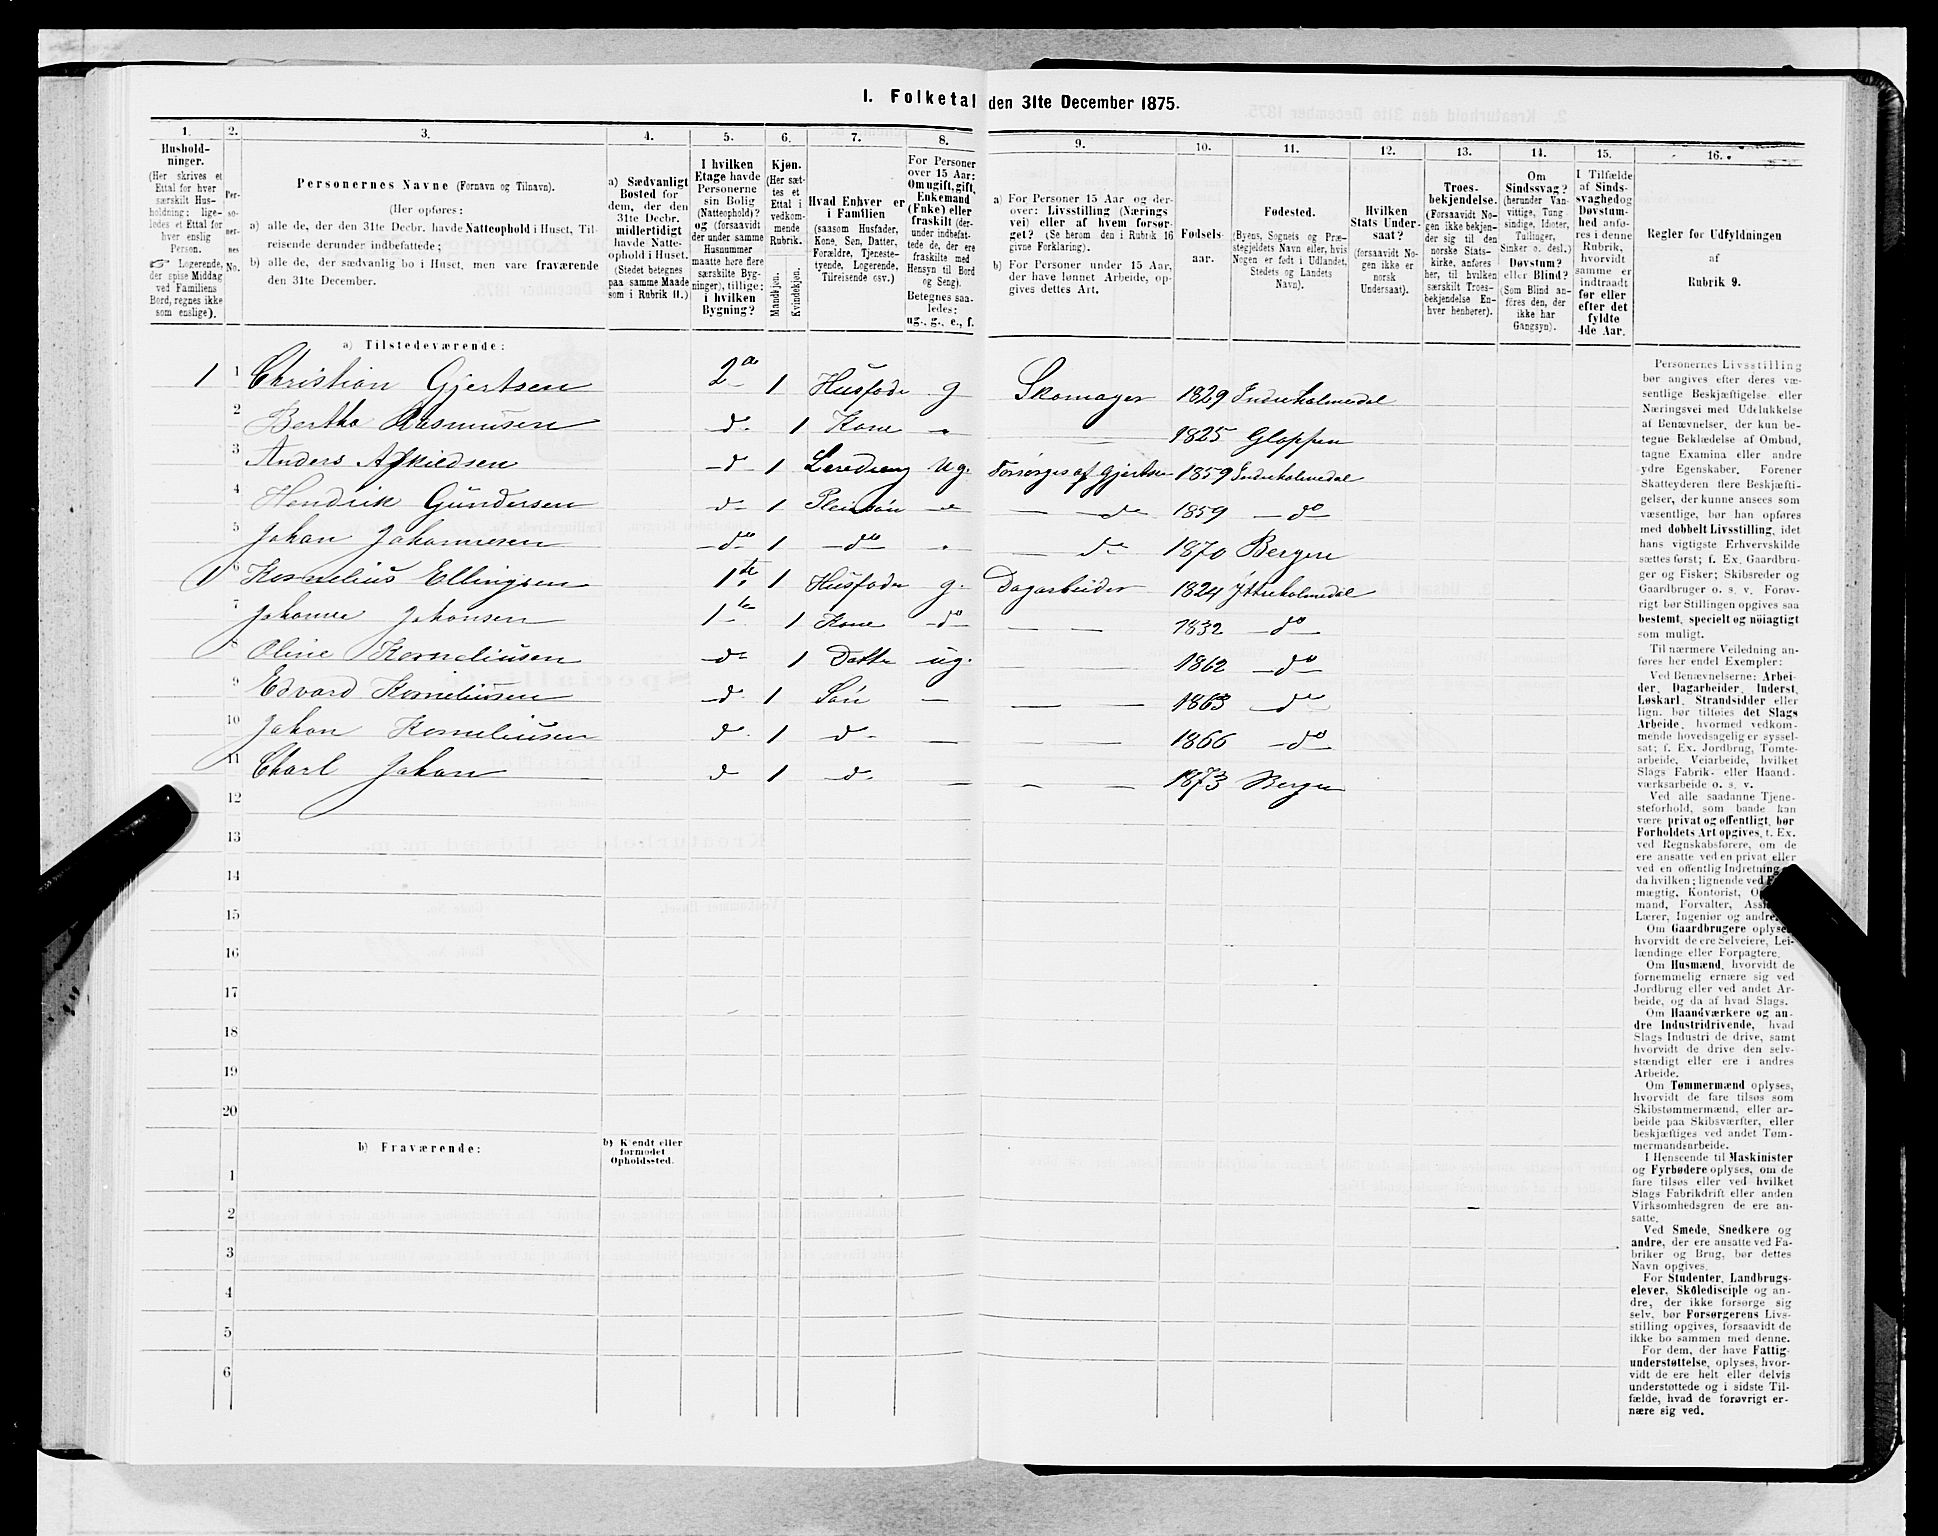 1. Folketal den 31te December 1875.
1. 2. 3. 4. 5. 6. 7. 8. 9. 10. 11. 12. 13. 14. 15. 16.
Hushold-
ninger.
(Her skrives et
Ettal for hver
særskilt Hus-
holdning; lige-
ledes et Ettal for
hver enslig
Person.
☞ Logerende,
der spise Middag
ved Familiens
Bord, regnes ikke
som enslige).
Per-
so-
ner-
nes
No.
Personernes Navne (Fornavn og Tilnavn).
(Her opføres:
a) alle de, der den 31te Decbr. havde Natteophold i Huset, Til-
reisende derunder indbefattede;
b) alle de, der sædvanlig bo i Huset, men vare fraværende
den 31te December.
a) Sædvanligt
Bosted for
dem, der den
31te Decbr.
midlertidigt
havde Natte-
ophold i Huset.
(Stedet betegnes
paa samme Maade
som i Rubrik 11.)
I hvilken
Etage havde
Personerne
sin Bolig
(Natteophold)?
og (forsaavidt
der under samme
Husnummer
maatte høre flere
særskilte Byg-
ninger), tillige:
i hvilken
Bygning?
Kjøn.
(Her sæt-
tes et
Ettal i
vedkom-
mende
Rubrik.
Mandkjøn.
Kvindekjøn.
Hvad Enhver er
i Familien
(saasom Husfader,
Kone, Søn, Datter,
Forældre, Tjeneste-
tyende, Logerende,
Tilreisende osv.)
For Personer
over 15 Aar:
Om ugift, gift,
Enkemand
(Enke) eller
fraskilt (der-
under indbefat-
tede de, der ere
fraskilte med
Hensyn til Bord
og Seng).
Betegnes saa-
ledes:
ug., g., e., f.
a) For Personer 15 Aar og der-
over: Livsstilling (Nærings-
vei) eller af hvem forsør-
get? (Se herom den i Rubrik 16
givne Forklaring).
b) For Personer under 15 Aar,
der have lønnet Arbeide, op-
gives dettes Art.
Fødsels-
aar.
Fødested.
(Byens, Sognets og Præ-
stegjeldets Navn eller, hvis
Nogen er født i Udlandet,
Stedets og Landets
Navn).
Hvilken
Stats Under-
saat?
(forsaavidt No-
gen ikke er
norsk
Undersaat).
Troes-
bekjendelse.
(Forsaavidt No-
gen ikke bekjen-
der sig til den
norske Stats-
kirke, anføres
her, til hvilken
særskilt Troes-
bekjendelse En-
hver henhører).
Om
Sindssvag?
(herunder Van-
vittige, Tung-
sindige, Idioter,
Tullinger,
Sinker o. desl.)
Døvstum?
eller Blind?
(Som Blind an-
føres den, der
ikke har
Gangsyn).
I Tilfælde
af Sinds-
svaghed og
Døvstum-
hed anfø-
res i denne
Rubrik,
hvorvidt
samme er
indtraadt
før eller
efter det
fyldte
4de Aar.
Regler for Udfyldningen
af
Rubrik 9.
a) Tilstedeværende:
1 1 Christian Gjertsen 2den 1 Husfader g Skomager 1829 Indreholmedal
2 Berthe Rasmusen d. 1 Kone " — 1825 Gloppen
3 Anders Askildsen d 1 Læredreng ug. Forsørges af Gjertsen 1859 Indreholmedal
4 Hendrik Gundersen do 1 Pleiesøn do — do 1859 — do
5 Johan Johannesen do 1 do " — do 1870 Bergen
1 6 Kornelius Ellingsen 1te 1 Husfader g. Dagarbeider 1824 Yttreholmedal
7 Johanne Johansen 1te 1 Kone do — — 1832 do
8 Oline Korneliusen do 1 Datter ug. — — 1862 do
9 Edvard Korneliusen d. 1 Søn — — — 1863 do
10 Johan Korneliusen d. 1 d. — — — 1866 do
11 Charl Johan d 1 d. — — — 1873 Bergen
12
13
14
15
16
17
18
19
20
b) Fraværende:
b) Kjendt eller
formodet
Opholdssted.
1
2
3
4
5
6
Personernes Livsstilling
bør angives efter deres væ-
sentlige Beskjæftigelse eller
Næringsvei med Udelukkelse
af Benævnelser, der kun be-
tegne Beklædelse af Ombud,
tagne Examina eller andre
ydre Egenskaber. Forener
Skatteyderen flere Beskjæfti-
gelser, der kunne ansees som
væsentlige, bør han opføres
med dobbelt Livsstilling, idet
hans vigtigste Erhvervskilde
sættes først; f. Ex. Gaardbru-
ger og Fisker; Skibsreder og
Gaardbruger o. s. v. Forøv-
rigt bør Stillingen opgives saa
bestemt, specielt og nöiagtigt
som muligt.
Til nærmere Veiledning an-
føres her endel Exempler:
Ved Benævnelserne: Arbei-
der, Dagarbeider, Inderst,
Løskarl, Strandsidder eller
lign. bør tilføies det Slags
Arbeide, hvormed vedkom-
mende hovedsagelig er syssel-
sat; f. Ex. Jordbrug, Tomte-
arbeide, Veiarbeide, hvilket
Slags Fabrik- eller Haand-
værksarbeide o. s. v.
Ved alle saadanne Tjene-
steforhold, som baade kan
være privat og offentligt, bør
Forholdets Art opgives, t. Ex.
ved Regnskabsførere, om de
ere ansatte ved en privat eller
ved en offentlig Indretning
da hvilken; lignende ved
mægtig, Kontorist,
mand, Forvalter,
Lærer, Ingeniør og andre.
Om Gaardbrugere oplyses,
hvorvidt de ere Selveiere, Lei-
lændinge eller Forpagtere.
Om Husmænd, hvorvidt de
fornemmelig ernære sig ved
Jordbrug eller ved andet Ar-
beide, og da af hvad Slags.
Om Haandværkere og an-
dre Industridrivende, hvad
Slags Industri de drive, samt
hvorvidt de drive den selv-
stændigt eller ere i andres
Arbeide.
Om Tømmermænd oplyses,
hvorvidt de fare tilsøs som
Skibstømmermænd, eller ar-
beide paa Skibsværfter, eller
beskjæftiges ved andet Tøm-
mermandsarbeide.
I Henseende til Maskinister
og Fyrbødere oplyses, om de
fare tilsøs eller ved hvilket
Slags Fabrikdrift eller anden
Virksomhedsgren de ere an-
satte.
Ved Smede, Snedkere og
andre, der ere ansatte ved Fa-
briker og Brug, bør dettes
Navn opgives.
For Studenter, Landbrugs-
elever, Skoledisciple og an-
dre, der ikke forsørge sig
selv, bør Forsørgerens Livs-
stilling opgives, forsaavidt de
ikke bo sammen med denne.
For dem, der have Fattig-
understøttelse, oplyses, hvor-
vidt de ere helt eller delvis
understøttede og i sidste Til-
fælde, hvad de forøvrigt er-
nære sig ved.